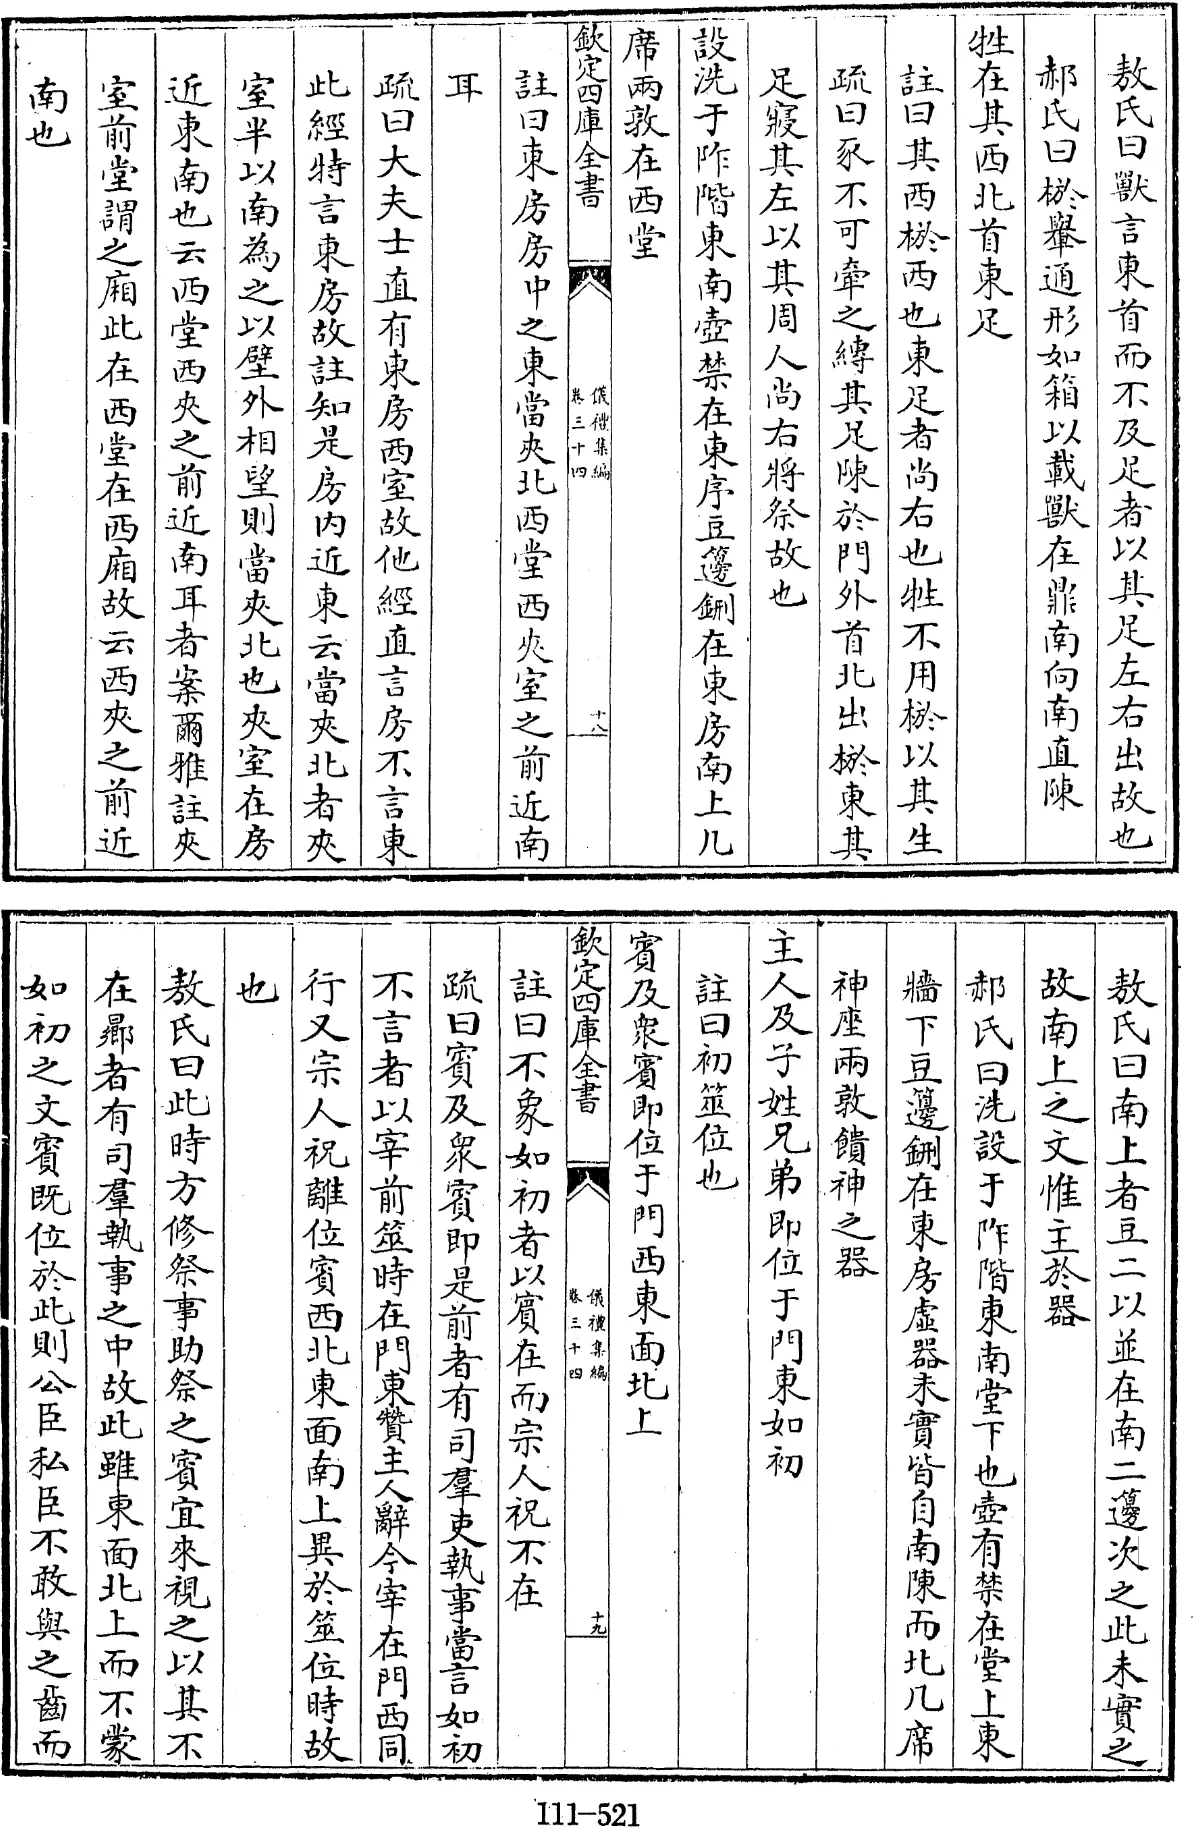 敖氏曰獸言東首而不及足者以其足左右出故也
郝氏曰棜轝通形如箱以載獸在鼎南向南直陳
牲在其西北首東足
註曰其西棜西也東足者尚右也牲不用棜以其生
疏曰豕不可牽之縛其足陳於門外首北出棜東其
足寢其左以其周人尚右將祭故也
設洗于阼階東南壺禁在東序豆籩鉶在東房南上几
席兩敦在西堂
欽定四庫全書
儀禮集編
卷三十四
十八
註曰東房房中之東當夾北西堂西夾室之前近南
耳
疏曰大夫士直有東房西室故他經直言房不言東
此經特言東房故註知是房内近東云當夾北者夾
室半以南為之以壁外相望則當夾北也夾室在房
近東南也云西堂西夾之前近南耳者案爾雅註夾
室前堂謂之廂此在西堂在西廂故云西夾之前近
南也
敖氏曰南上者豆二以並在南二籩次之此未實之
故南上之文惟主於器
郝氏曰洗設于阼階東南堂下也壺有禁在堂上東
牆下豆籩鉶在東房虛器未實皆自南陳而北几席
神座兩敦饋神之器
主人及子姓兄弟即位于門東如初
註曰初筮位也
賓及衆賓即位于門西東面北上
欽定四庫全書
儀禮集編
卷三十四
十九
註曰不象如初者以賓在而宗人祝不在
疏曰賓及衆賓即是前者有司羣吏執事當言如初
不言者以宰前筮時在門東贊主人辭今宰在門西同
行又宗人祝離位賓西北東面南上異於筮位時故
也
敖氏曰此時方修祭事助祭之賓宜來視之以其不
在鄉者有司羣執事之中故此雖東面北上而不蒙
如初之文賓既位於此則公臣私臣不敢與之齒而
111-521